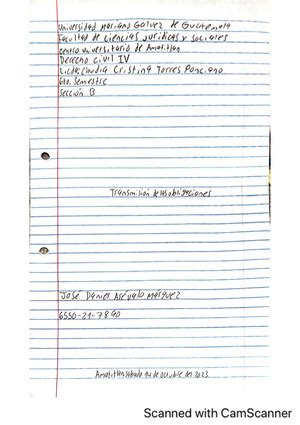 Universidad Mariano Galvez de Guatemala
Facultad de Ciencias Juridicas y sociales
centro universitario de Amatitlan
Derecho civil IV
Licda: Claudia Cristina Torres Ponciano
6to. Semestre
Sección B
Transmisión de las obligaciones
José Daniel Arévalo Márquez
6550-21-7840
Amatitlan sábado 14 de octubre del 2023
Scanned with CamScanner